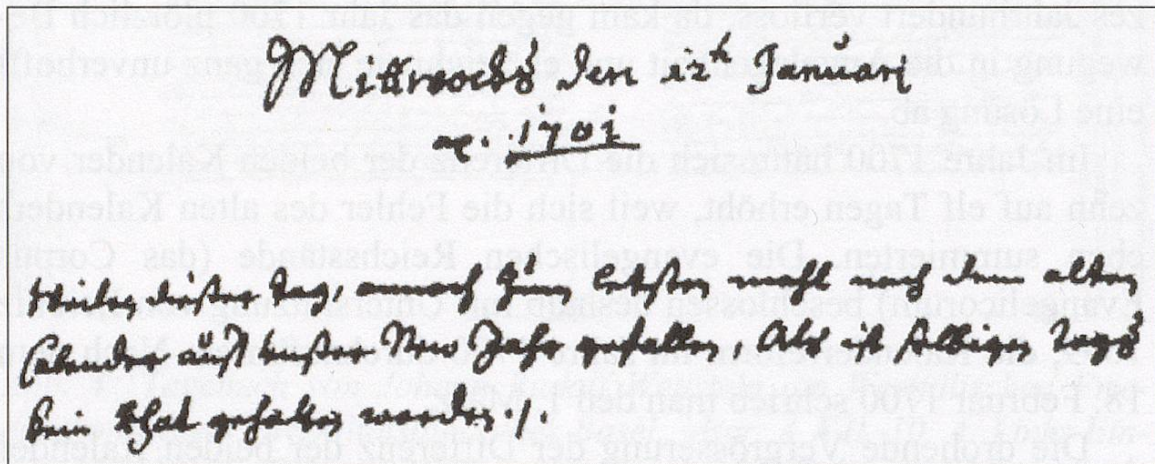 Mittwochs den 12th Januarÿ
a. 1701
Weilen dießer Tag, annoch Zum letsten mahl nach dem alten
Calender auff unßer Neu Jahr gefallen, Als ist selbigen Tags
kein Rhat gehalten worden ./.